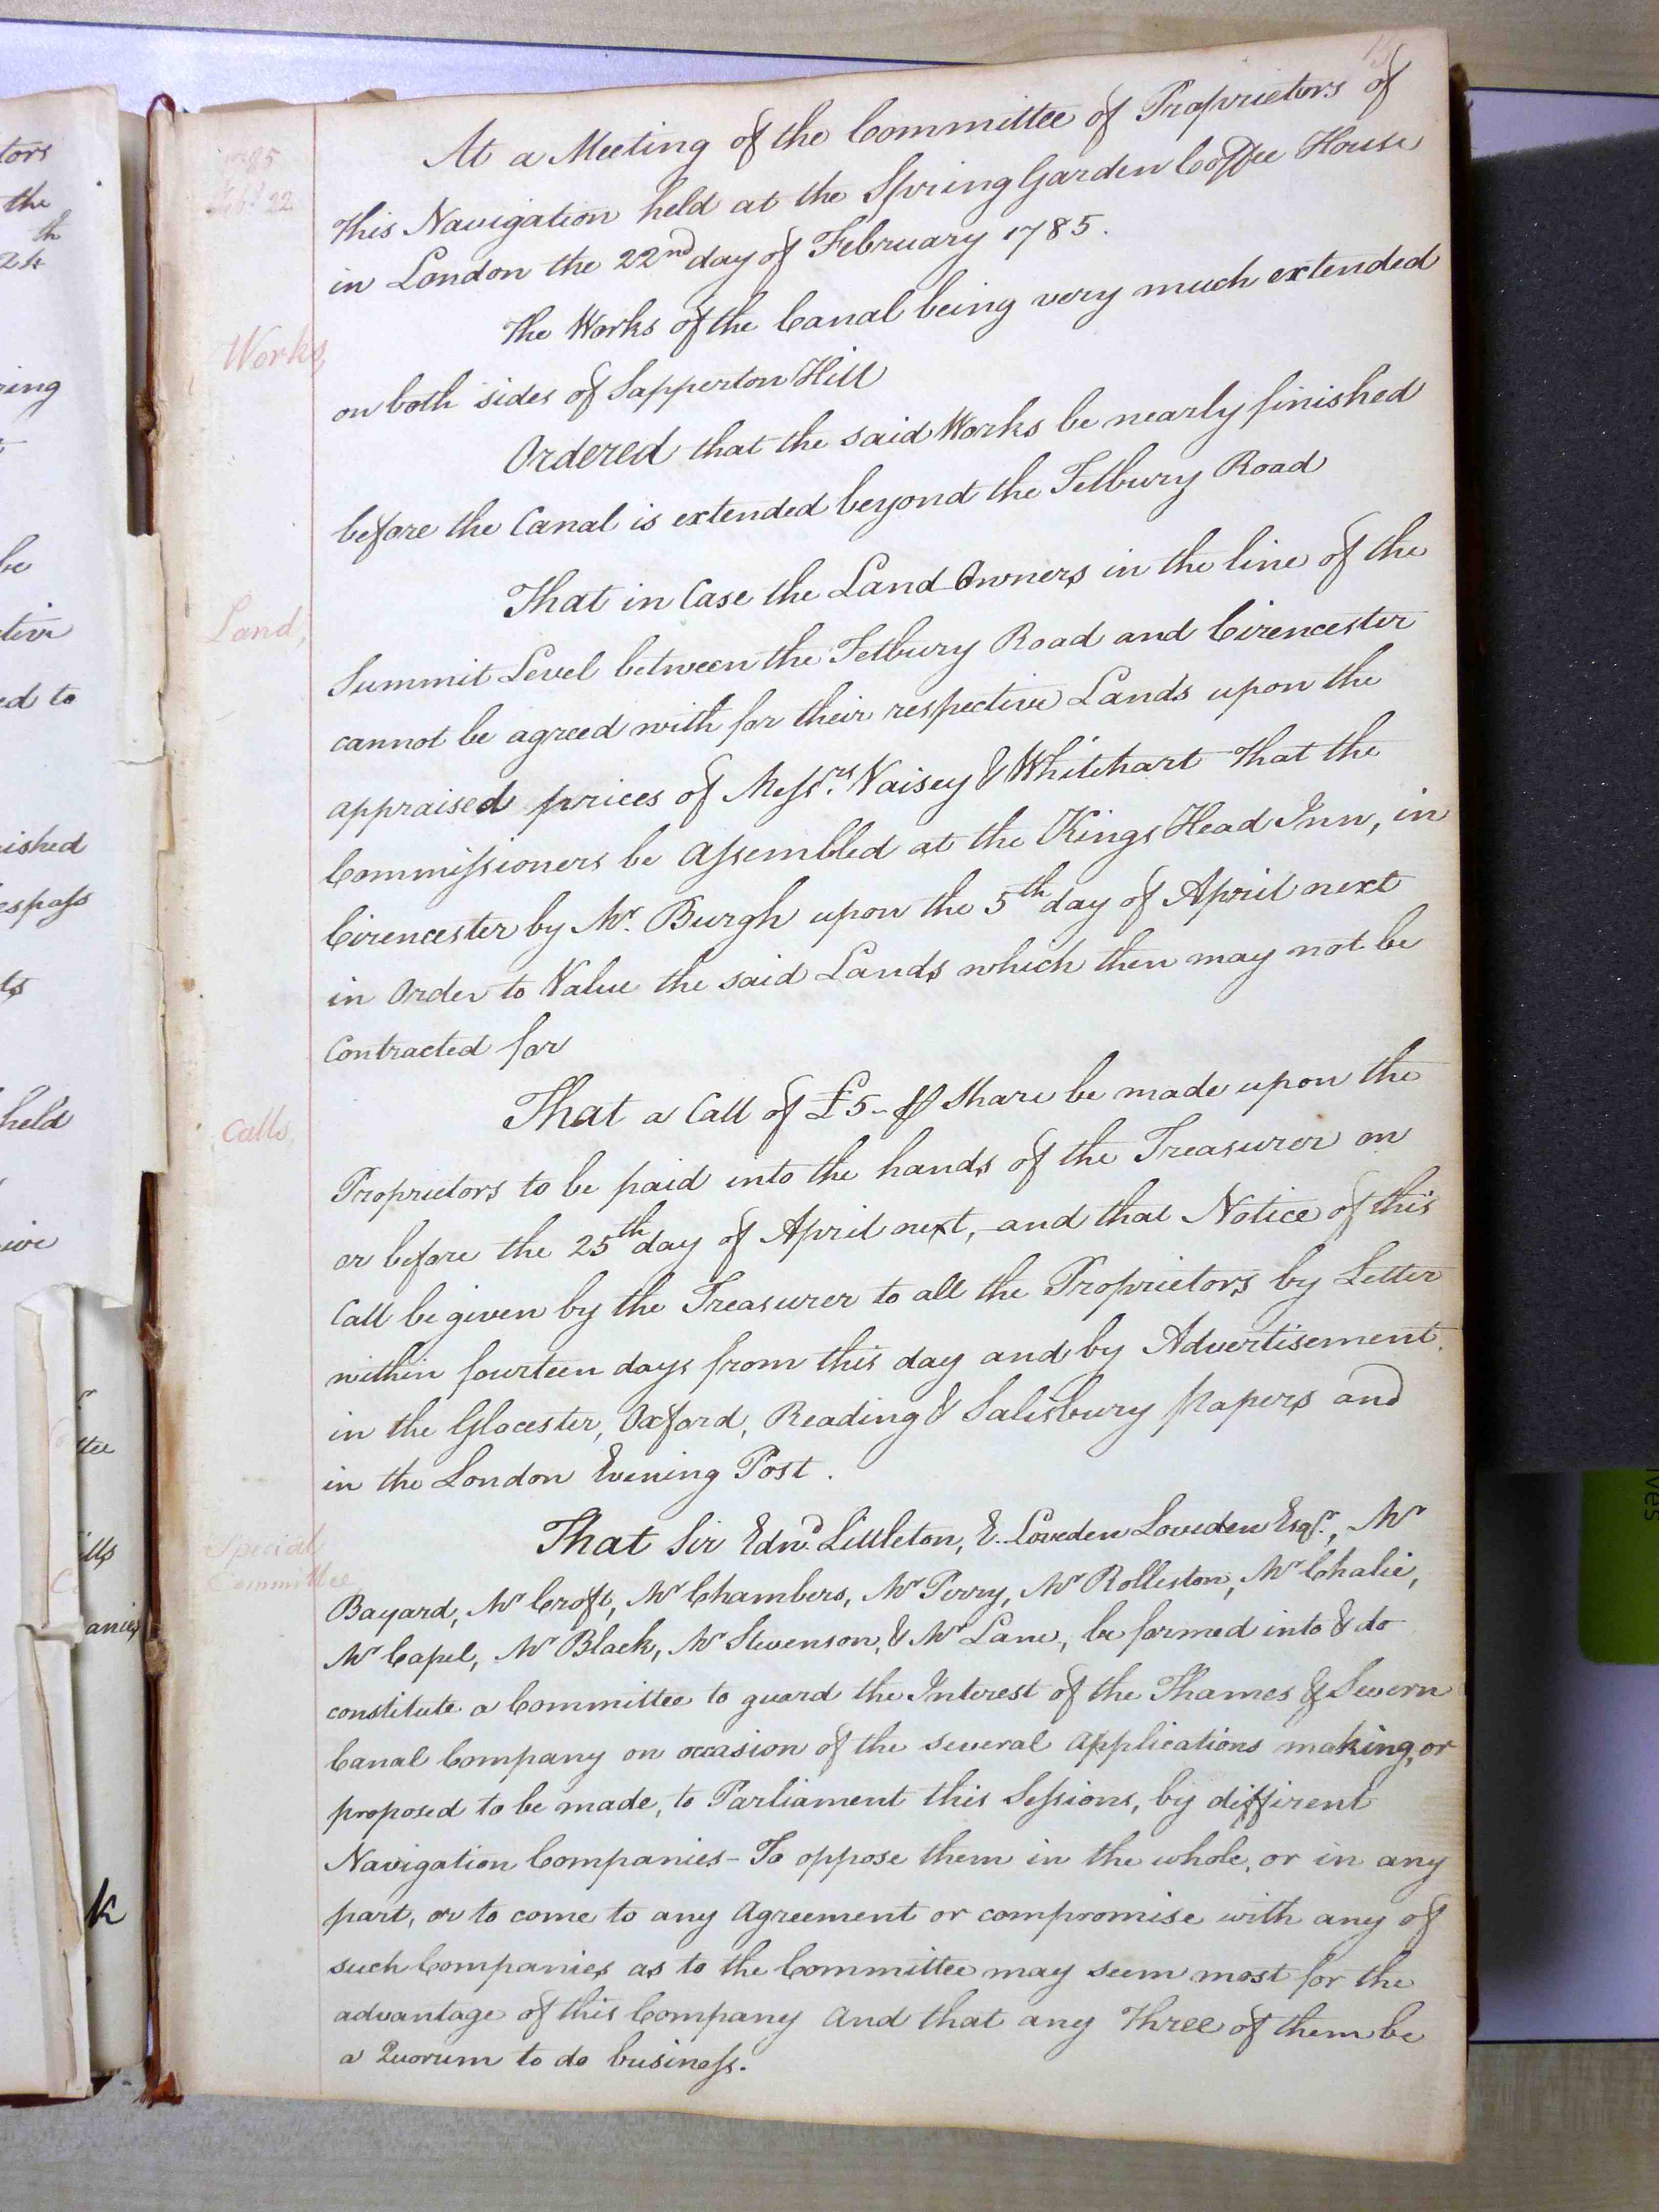 1785
Feb.y 22
At a Meeting of the Committee of Proprietors of
this Navigation held at the Spring Garden Coffee House
in London the 22nd day of February 1785.
Works,
The Works of the Canal being very much extended
on both sides of Sapperton Hill
Ordered that the said Works be nearly finished
before the Canal is extended beyond the Tetbury Road
Land,
That in Case the Land Owners in the line of the
Summit Level between the Tetbury Road and Cirencester
cannot be agreed with for their respective Lands upon the
appraised prices of Messrs. Vaisey & Whitehart that the
Commissioners be Assembled at the Kings Head Inn, in
Cirencester by Mr. Burgh upon the 5th day of April next
in Order to Value the said Lands which then may not be
Contracted for
Calls,
That a Call of £5 - ⅌ Share be made upon the
Proprietors to be paid into the hands of the Treasurer on
or before the 25th day of April next, and that Notice of this
Call be given by the Treasurer to all the Proprietors by Letter
within fourteen days from this day and by Advertisement
in the Glocester, Oxford, Reading & Salisbury Papers and
in the London Evening Post.
Special
Committee
That Sir Edwd. Littleton, E. Loveden Loveden Esqr., Mr
Bayard, Mr Croft, Mr Chambers, Mr Perry, Mr Rolleston, Mr Chalie,
Mr Capel, Mr Black, Mr Stevenson, & Mr Lane, be formed into & do
constitute a Committee to guard the Interest of the Thames & Severn
Canal Company on occasion of the several Applications making, or
proposed to be made, to Parliament this Sessions, by different
Navigation Companies - To oppose them in the whole, or in any
part, or to come to any Agreement or compromise with any of
such Companies as to the Committee may seem most for the
advantage of this Company And that any Three of them be
a Quorum to do business.